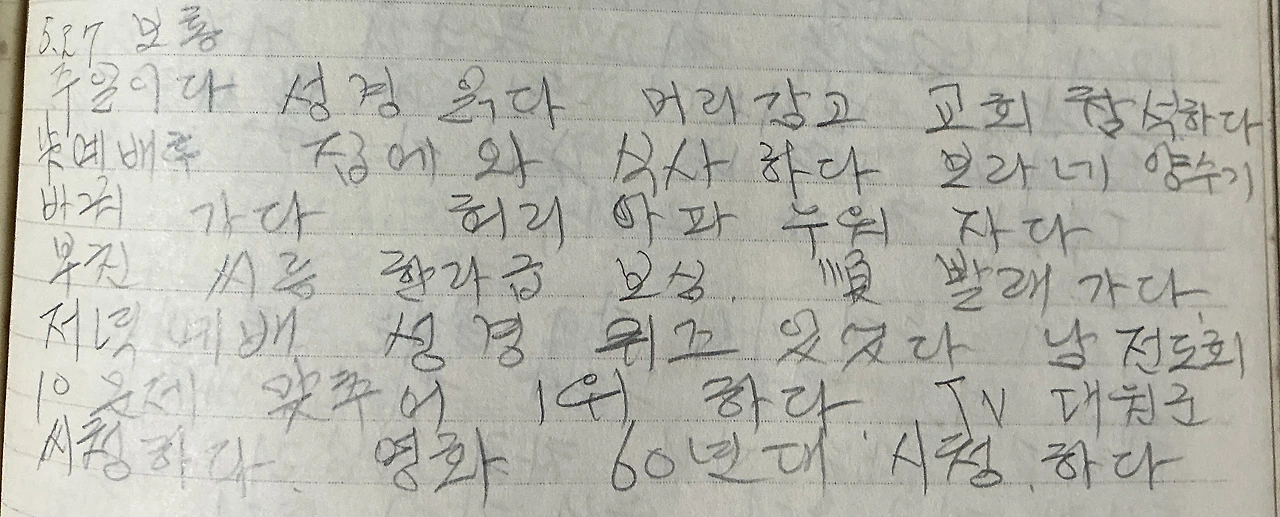 5.27 보통
주일이다 성경 읽다 머리감고 교회 참석하다
낮예배후 집에 와 식사 하다 보라네 양수기
바퀴 가다 허리 아파 누워 자다
부친 씨름 한라급 보심. 順 빨래 가다.
저녁 예배 성경 퀴즈 있었다 남 전도회
10문제 맞추어 1위 하다 TV 대원군
시청하다. 영화 60년대 시청 하다